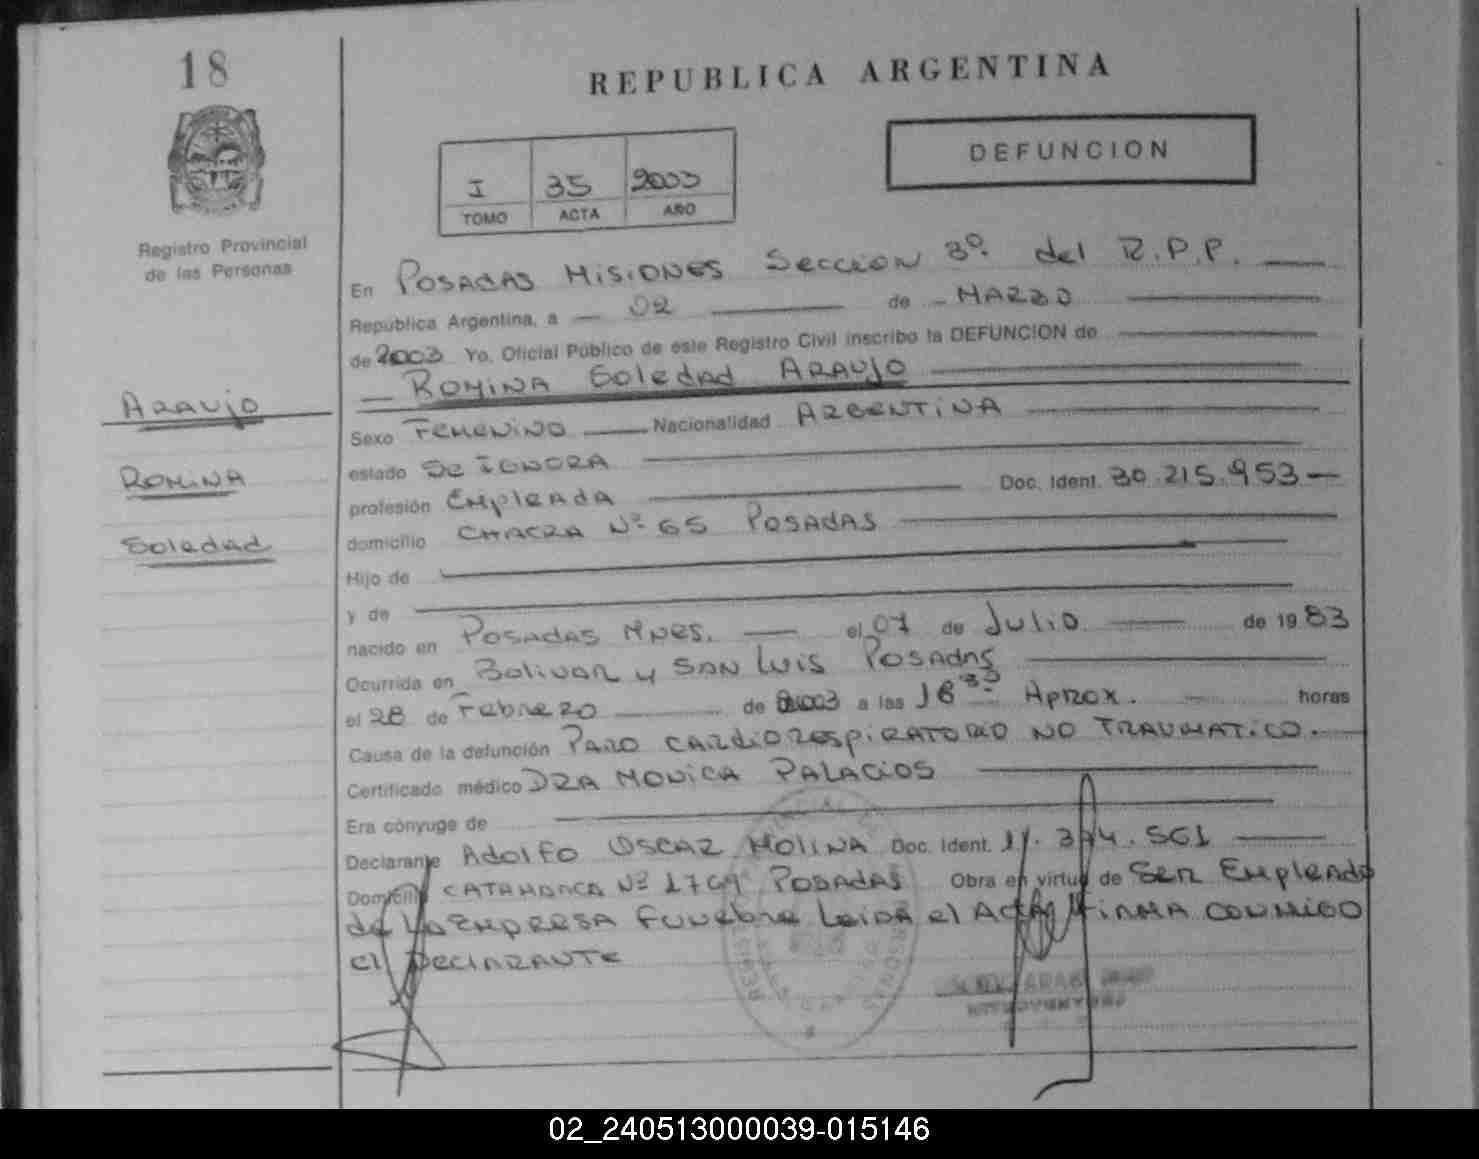 18
REPUBLICA ARGENTINA
DEFUNCION
I 35 2003
TOMO ACTA AÑO
Registro Provincial
de las Personas
En POSADAS MISIONES Sección 3º del R.P.P.
República Argentina, a 02 de MARZO
de 2003 Yo, Oficial Público de este Registro Civil inscribo la DEFUNCION de
ROMINA Soledad ARAUJO
ARAUJO
Sexo Femenino Nacionalidad ARGENTINA
estado Se IGNORA
ROMINA
profesión Empleada Doc. Ident. 30.215.953
domicilio CHACRA Nº 65 POSADAS
Soledad
Hijo de
y de
nacido en POSADAS Mnes. el 07 de Julio de 1983
Ocurrida en Bolivar y SAN LUIS POSADAS
el 28 de Febrero de 2003 a las 16 30 Aprox. horas
Causa de la defunción PARO CARDIORESPIRATORIO NO TRAUMATICO.
Certificado médico DRA MONICA PALACIOS
Era cónyuge de
Declarante Adolfo OSCAR MOLINA Doc. Ident. 11.374.561
Domicilio CATAMARCA Nº POSADAS Obra en virtud de Ser Empleado
de la EMPRESA Funebre Leida el ACTA FIRMA CONMIGO
el DeclARANTE
02_240513000039-015146